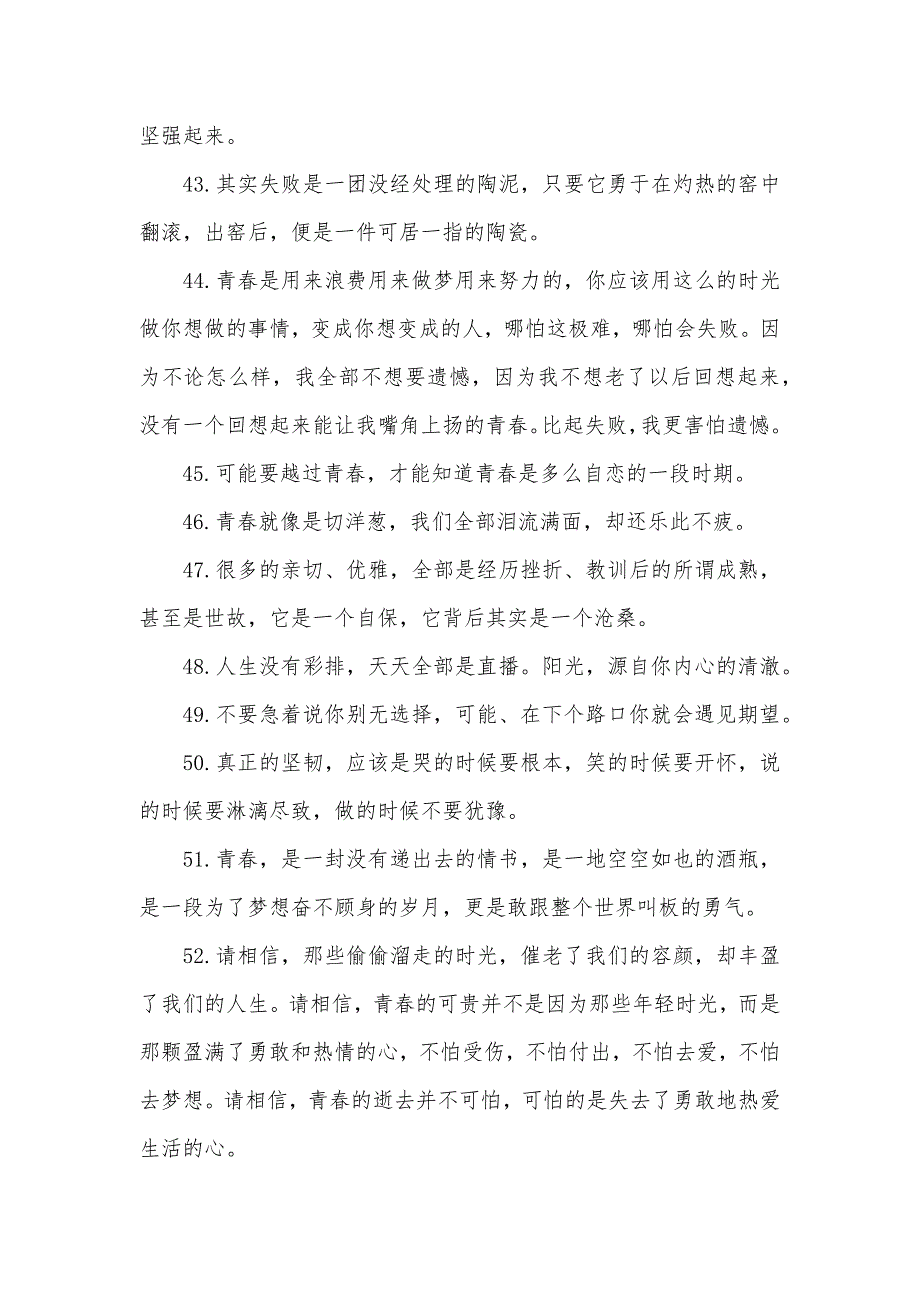 坚强起来。
43.其实失败是一团没经处理的陶泥，只要它勇于在灼热的窑中
翻滚，出窑后，便是一件可居一指的陶瓷。
44.青春是用来浪费用来做梦用来努力的，你应该用这么的时光
做你想做的事情，变成你想变成的人，哪怕这极难，哪怕会失败。因
为不论怎么样，我全部不想要遗憾，因为我不想老了以后回想起来，
没有一个回想起来能让我嘴角上扬的青春。比起失败，我更害怕遗憾。
45.可能要越过青春，才能知道青春是多么自恋的一段时期。
46.青春就像是切洋葱，我们全部泪流满面，却还乐此不疲。
47.很多的亲切、优雅，全部是经历挫折、教训后的所谓成熟，
甚至是世故，它是一个自保，它背后其实是一个沧桑。
48.人生没有彩排，天天全部是直播。阳光，源自你内心的清澈。
49.不要急着说你别无选择，可能、在下个路口你就会遇见期望。
50.真正的坚韧，应该是哭的时候要根本，笑的时候要开怀，说
的时候要淋漓尽致，做的时候不要犹豫。
51.青春，是一封没有递出去的情书，是一地空空如也的酒瓶，
是一段为了梦想奋不顾身的岁月，更是敢跟整个世界叫板的勇气。
52.请相信，那些偷偷溜走的时光，催老了我们的容颜，却丰盈
了我们的人生。请相信，青春的可贵并不是因为那些年轻时光，而是
那颗盈满了勇敢和热情的心，不怕受伤，不怕付出，不怕去爱，不怕
去梦想。请相信，青春的逝去并不可怕，可怕的是失去了勇敢地热爱
生活的心。